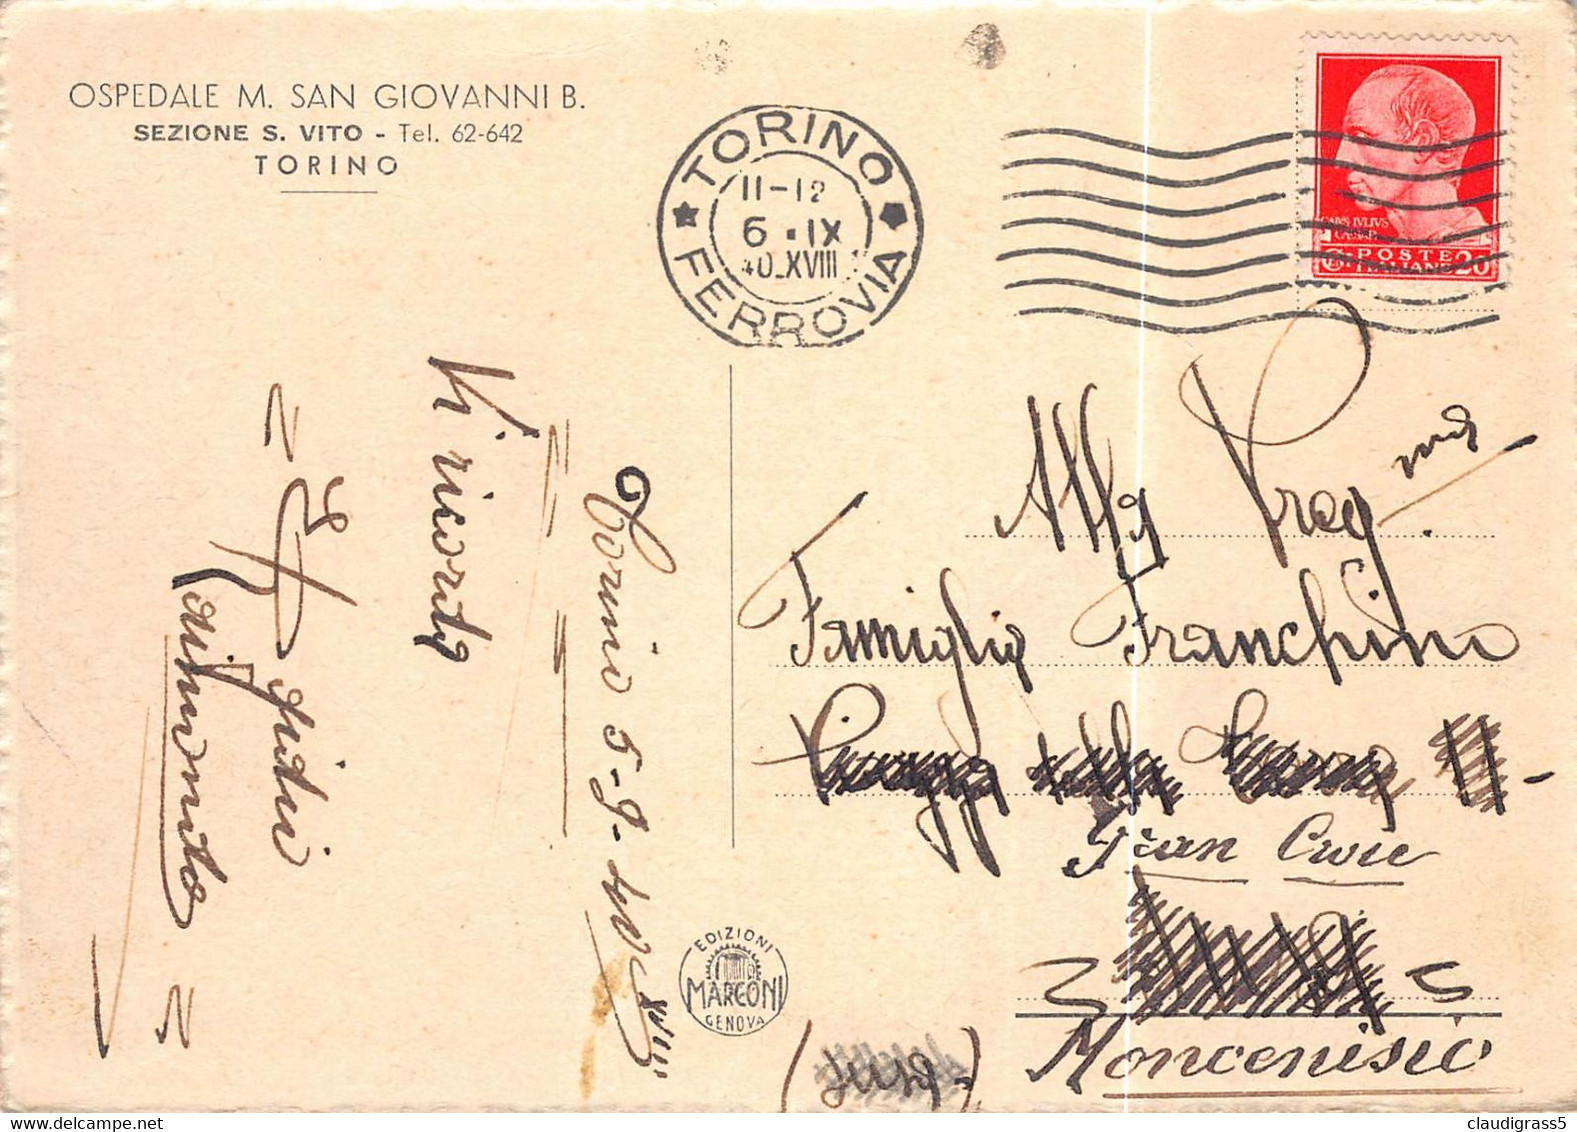 OSPEDALE M. SAN GIOVANNI B.
SEZIONE S. VITO - Tel. 62-642
TORINO
TORINO
11-12
6 . IX
40. XVIII
FERROVIA
POSTE
ITALIANE 20
Torino 5-9-40 XVIII
Vi ricorda
Raimondo
All
Preg
Famiglia Franchino
Piazza
Gran Croce
Moncenisio
EDIZIONI
MARCONI
GENOVA
claudigrass5